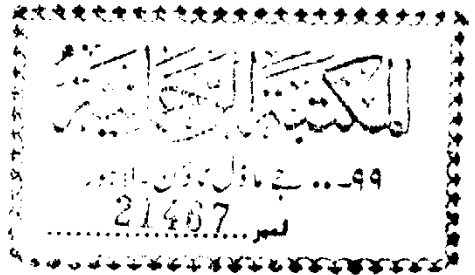 المكتبة الرحمانية
۹۹۔۔۔ جے ماڈل ٹاؤن۔ لاہور
نمبر 21467